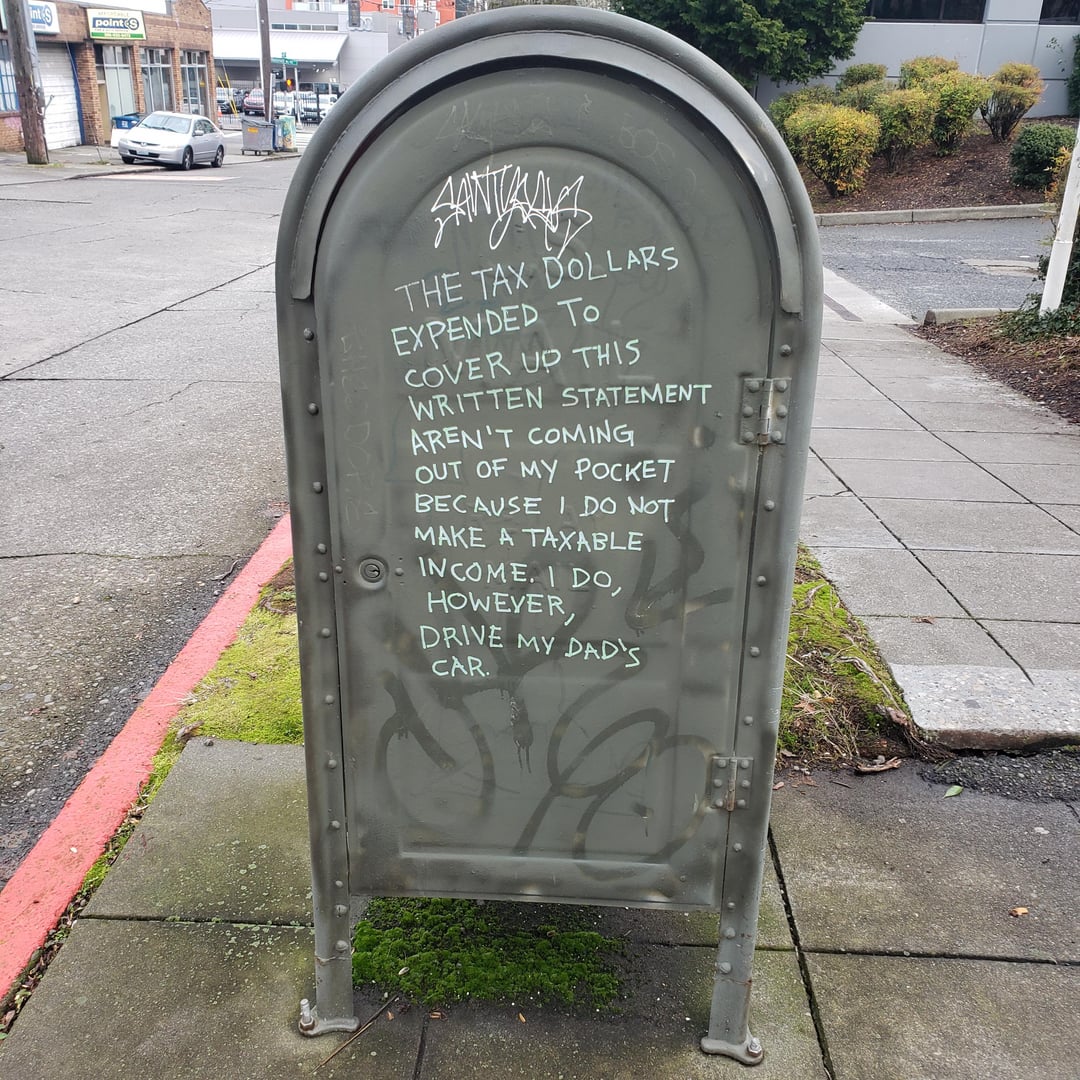 point S
THE TAX DOLLARS
EXPENDED TO
COVER UP THIS
WRITTEN STATEMENT
AREN'T COMING
OUT OF MY POCKET
BECAUSE I DO NOT
MAKE A TAXABLE
INCOME. I DO,
HOWEVER,
DRIVE MY DAD'S
CAR.